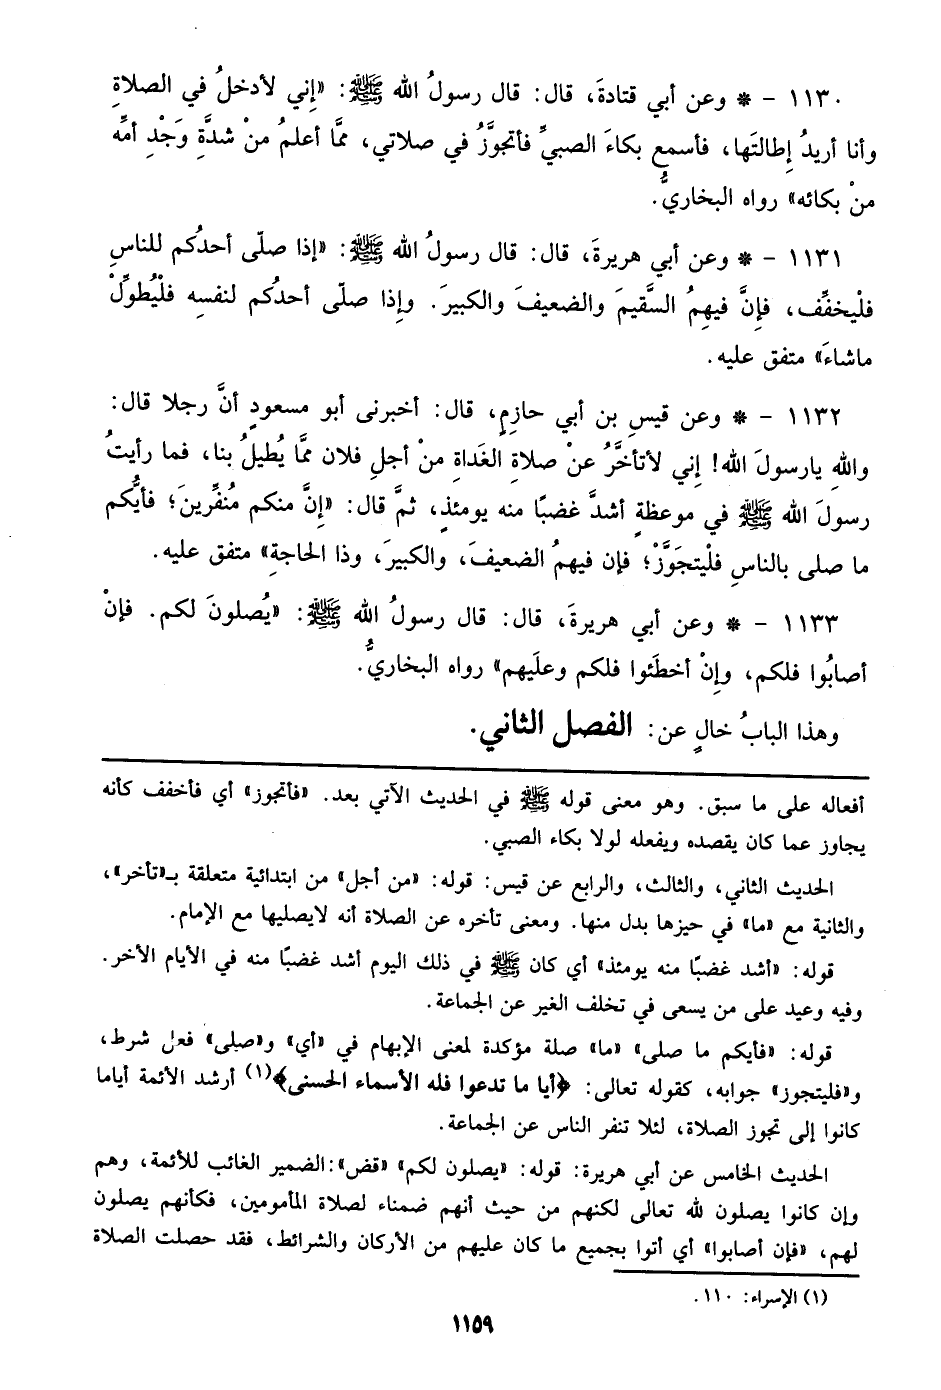 ١١٣٠ - * وعن أبي قتادةَ، قال: قال رسولُ الله ﷺ: «إِني لأدخلُ في الصلاةِ
وأنا أريدُ إِطالتَها، فأسمع بكاءَ الصبيِّ فأتجوَّزُ في صلاتي، ممَّا أعلم منْ شدَّةِ وَجْدِ أمِّه
منْ بكائه» رواه البخاريُّ.
١١٣١ - * وعن أبي هريرةَ، قال: قال رسولُ الله ﷺ: «إذا صلّى أحدُكم للناسِ
فلْيخفِّف، فإِنَّ فيهِمُ السَّقيمَ والضعيفَ والكبيرَ. وإِذا صلّى أحدُكم لنفسِه فلْيُطوِّلْ
ماشاءَ» متفق عليه.
١١٣٢ - * وعن قيسِ بن أبي حازِمٍ، قال: أخبرنى أبو مسعودٍ أنَّ رجلا قال:
واللهِ يارسولَ الله! إِني لأتأخَّرُ عنْ صلاةِ الغَداةِ منْ أجلِ فلان ممَّا يُطيلُ بنا، فما رأيتُ
رسولَ الله ﷺ في موعظةٍ أشدَّ غضبًا منه يومئذٍ، ثمَّ قال: «إِنَّ منكم مُنفِّرينَ؛ فأيُّكم
ما صلى بالناسِ فلْيتجوَّزْ؛ فإن فيهمُ الضعيفَ، والكبيرَ، وذا الحاجةِ» متفق عليه.
١١٣٣ - * وعن أبي هريرةَ، قال: قال رسولُ الله ﷺ: «يُصلونَ لكم. فإنْ
أصابُوا فلكم، وإِنْ أخطَئوا فلكم وعلَيهم» رواه البخاريُّ.
وهذا البابُ خالٍ عن: الفصل الثاني.
أفعاله على ما سبق. وهو معنى قوله ﷺ في الحديث الآتي بعد. «فأتجوز» أي فأخفف كأنه
يجاوز عما كان يقصده ويفعله لولا بكاء الصبي.
الحديث الثاني، والثالث، والرابع عن قيس: قوله: «من أجل» من ابتدائية متعلقة بـ«تأخر»،
والثانية مع «ما» في حيزها بدل منها. ومعنى تأخره عن الصلاة أنه لايصليها مع الإمام.
قوله: «أشد غضبًا منه يومئذ» أي كان ﷺ في ذلك اليوم أشد غضبًا منه في الأيام الأخر.
وفيه وعيد على من يسعى في تخلف الغير عن الجماعة.
قوله: «فأيكم ما صلى» «ما» صلة مؤكدة لمعنى الإبهام في «أي» و«صلى» فعل شرط،
و«فليتجوز» جوابه، كقوله تعالى: ﴿أيا ما تدعوا فله الأسماء الحسنى﴾(١) أرشد الأئمة أياما
كانوا إلى تجوز الصلاة، لئلا تنفر الناس عن الجماعة.
الحديث الخامس عن أبي هريرة: قوله: «يصلون لكم» «قض»:الضمير الغائب للأئمة، وهم
وإن كانوا يصلون لله تعالى لكنهم من حيث أنهم ضمناء لصلاة المأمومين، فكأنهم يصلون
لهم، «فإن أصابوا» أي أتوا بجميع ما كان عليهم من الأركان والشرائط، فقد حصلت الصلاة
(١) الإسراء: ١١٠.
١١٥٩